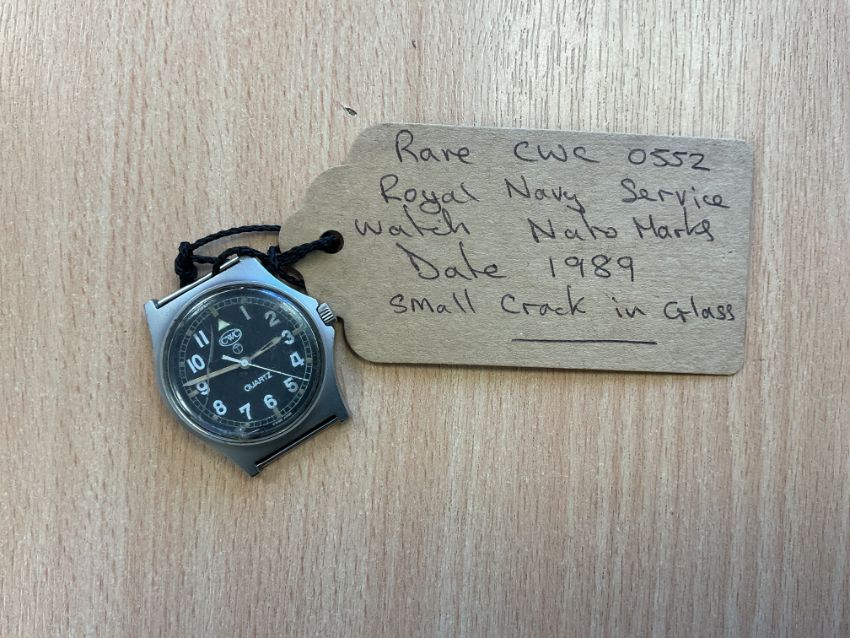 Rare CWC 0552
Royal Navy Service
Watch Nato Marks
Date 1989
Small Crack in Glass
1
2
3
4
5
6
7
8
9
10
11
CWC
T
QUARTZ